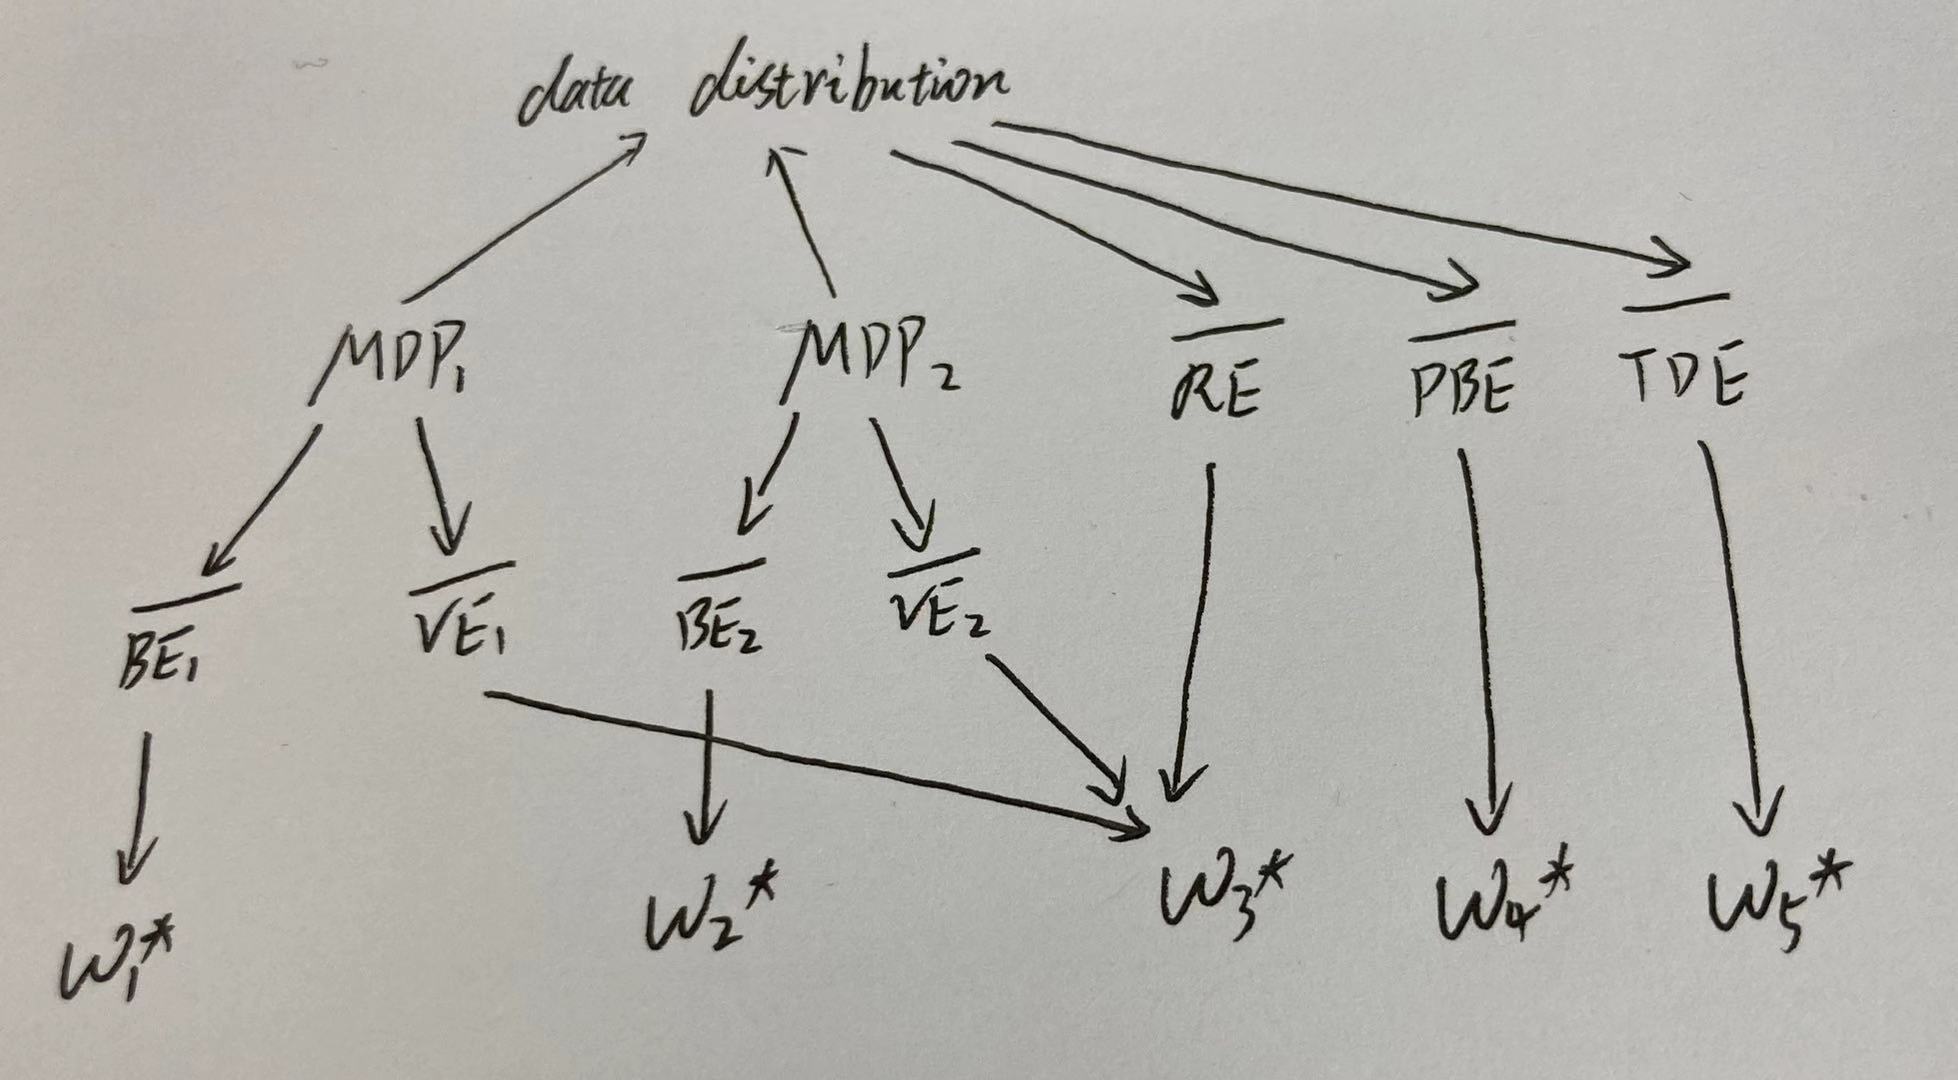 data distribution
MDP₁ MDP₂ R̅E̅ P̅B̅E̅ T̅D̅E̅
B̅E̅₁ V̅E̅₁ B̅E̅₂ V̅E̅₂
W₁* W₂* W₃* W₄* W₅*